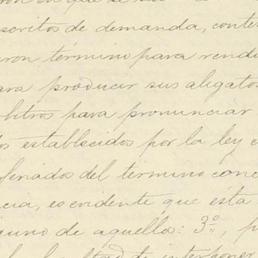 scritos de demanda, conte
ron término para rend
ara producir sus alegatos
bitros para pronunciar
os establecidos por la ley
fenados del termino conc
cia, es evidente que esta
guno de aquello: 3º, p
de interponer